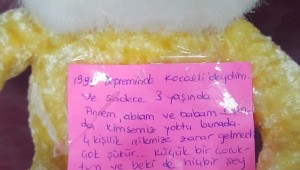 1999 depreminde Kocaeli'deydim.
Ve sadece 3 yaşında
Annem, ablam ve babam
da kimsemiz yoktu burada.
4 kişilik ailemize zarar gelmedi
Çok şükür... Küçük bir çocuk-
tum ve belki de hiçbir şey